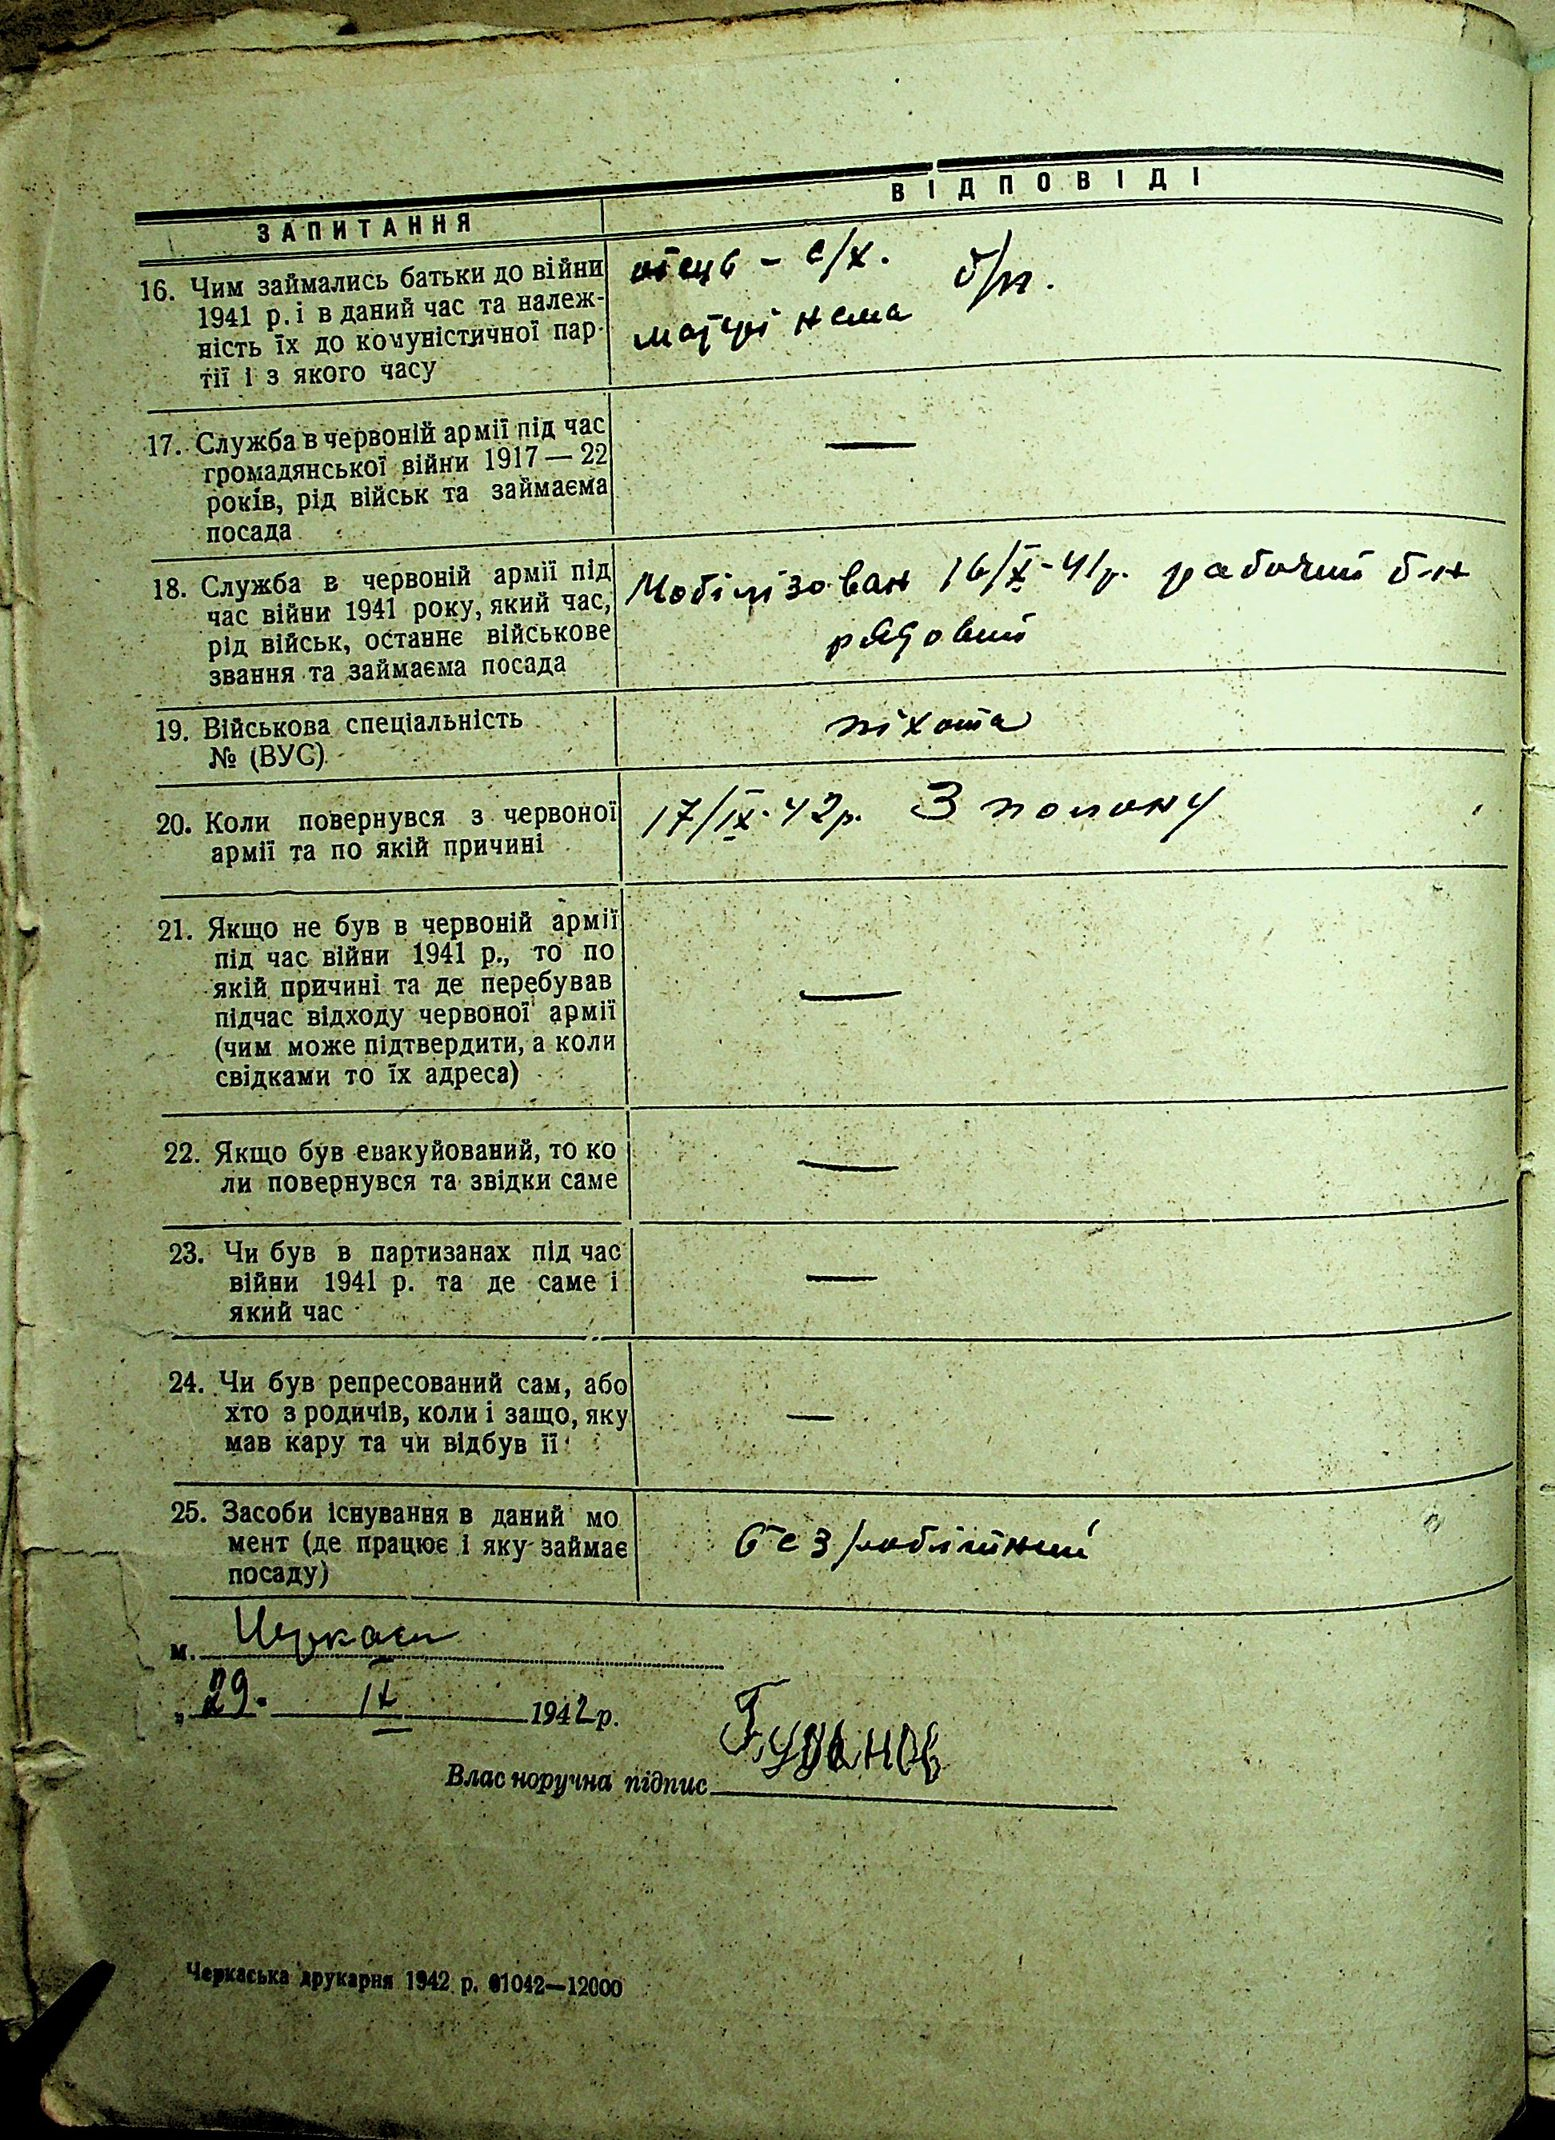 ЗАПИТАННЯ
ВІДПОВІДІ
16. Чим займались батьки до війни
1941 р. і в даний час та належ-
ність їх до комуністичної пар-
тії і з якого часу
отець – с/х. б/п.
матері нема
17. Служба в червоній армії під час
громадянської війни 1917 — 22
років, рід військ та займаєма
посада
—
18. Служба в червоній армії під
час війни 1941 року, який час,
рід військ, останнє військове
звання та займаєма посада
Мобілізован 16/X-41р. рабочий б-н
рядовий
19. Військова спеціальність
№ (ВУС)
піхота
20. Коли повернувся з червоної
армії та по якій причині
17/IX-42р. З полону
21. Якщо не був в червоній армії
під час війни 1941 р., то по
якій причині та де перебував
підчас відходу червоної армії
(чим може підтвердити, а коли
свідками то їх адреса)
—
22. Якщо був евакуйований, то ко
ли повернувся та звідки саме
—
23. Чи був в партизанах під час
війни 1941 р. та де саме і
який час
—
24. Чи був репресований сам, або
хто з родичів, коли і защо, яку
мав кару та чи відбув її
—
25. Засоби існування в даний мо
мент (де працює і яку займає
посаду)
безробітний
м. Черкаси
„29. IX 1942 р.
Власноручна підпис
Черкаська друкарня 1942 р. 01042—12000